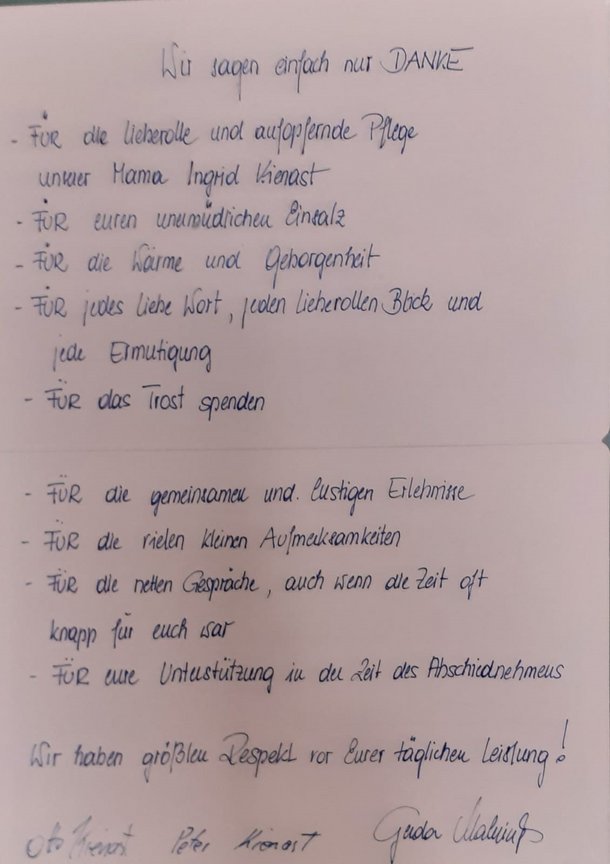 Wir sagen einfach nur DANKE
- FÜR die liebevolle und aufopfernde Pflege
unserer Mama Ingrid Kienast
- FÜR euren unermüdlichen Einsatz
- FÜR die Wärme und Geborgenheit
- FÜR jedes liebe Wort, jeden liebevollen Blick und
jede Ermutigung
- FÜR das Trost spenden
- FÜR die gemeinsamen und lustigen Erlebnisse
- FÜR die vielen kleinen Aufmerksamkeiten
- FÜR die netten Gespräche, auch wenn die Zeit oft
knapp für euch war
- FÜR eure Unterstützung in der Zeit des Abschiednehmens
Wir haben größten Respekt vor Eurer täglichen Leistung!
Otto Kienast Peter Kienast